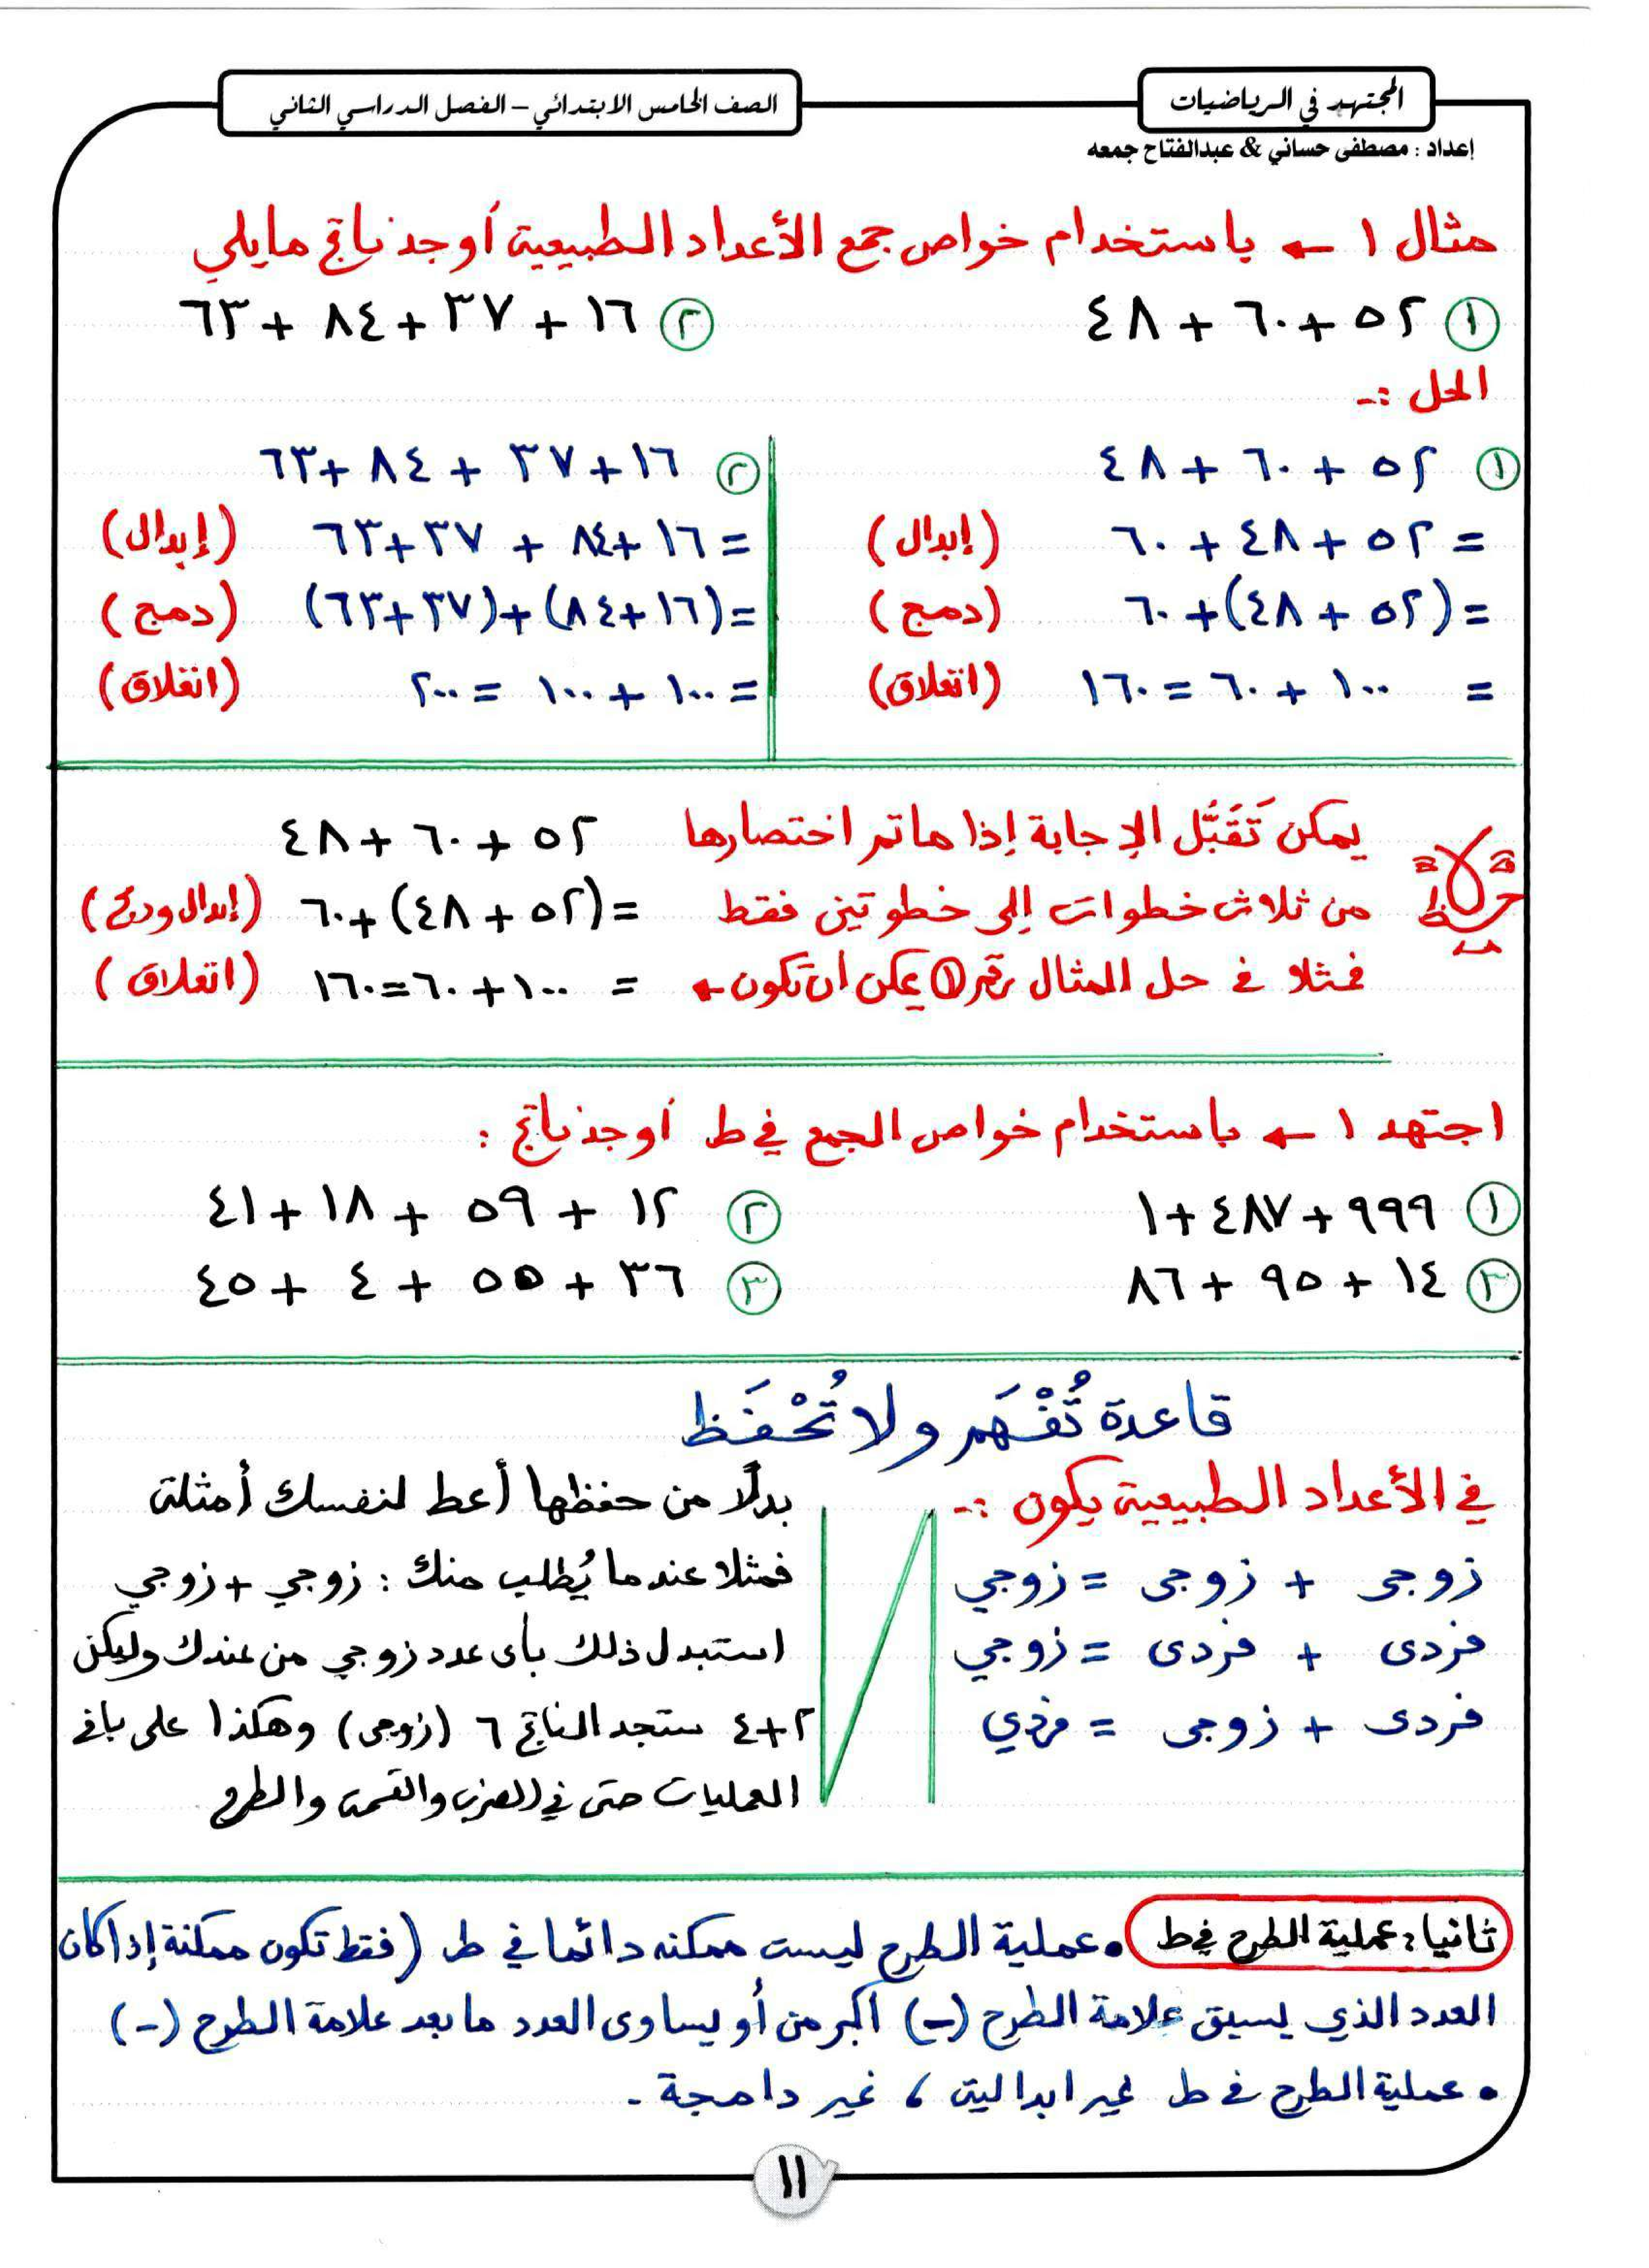 المجتهد في الرياضيات
الصف الخامس الابتدائي – الفصل الدراسي الثاني
إعداد : مصطفى حساني & عبدالفتاح جمعه
مثال ١ ← باستخدام خواص جمع الأعداد الطبيعية أوجد ناتج مايلي
① ٥٢ + ٦٠ + ٤٨
② ١٦ + ٣٧ + ٨٤ + ٦٣
الحل :-
① ٥٢ + ٦٠ + ٤٨
= ٥٢ + ٤٨ + ٦٠ (إبدال)
= (٥٢ + ٤٨) + ٦٠ (دمج)
= ١٠٠ + ٦٠ = ١٦٠ (انغلاق)
② ١٦ + ٣٧ + ٨٤ + ٦٣
= ١٦ + ٨٤ + ٣٧ + ٦٣ (إبدال)
= (١٦ + ٨٤) + (٣٧ + ٦٣) (دمج)
= ١٠٠ + ١٠٠ = ٢٠٠ (انغلاق)
ملاحظة
يمكن تَقَبُّل الإجابة إذا ما تم اختصارها
من ثلاث خطوات إلى خطوتين فقط
فمثلا في حل المثال رقم ① يمكن أن تكون ←
٥٢ + ٦٠ + ٤٨
= (٥٢ + ٤٨) + ٦٠ (إبدال ودمج)
= ١٠٠ + ٦٠ = ١٦٠ (انغلاق)
اجتهد ١ ← باستخدام خواص الجمع في ط أوجد ناتج :
① ٩٩٩ + ٤٨٧ + ١
② ١٢ + ٥٩ + ١٨ + ٤١
③ ١٤ + ٩٥ + ٨٦
③ ٣٦ + ٥٥ + ٤ + ٤٥
قاعدة تُفْهَم ولا تُحْفَظ
في الأعداد الطبيعية يكون :-
زوجى + زوجى = زوجي
فردى + فردى = زوجي
فردى + زوجى = فردي
بدلًا من حفظها أعط لنفسك أمثلة
فمثلا عندما يُطلب منك : زوجي + زوجي
استبدل ذلك بأى عدد زوجي من عندك وليكن
٢+٤ ستجد الناتج ٦ (زوجى) وهكذا على باقى
العمليات حتى في الضرب والقسمة والطرح
ثانيا : عملية الطرح في ط
• عملية الطرح ليست ممكنه دائما في ط (فقط تكون ممكنة إذا كان
العدد الذي يسبق علامة الطرح (-) أكبر من أو يساوى العدد ما بعد علامة الطرح (-)
• عملية الطرح في ط غير ابدالية ، غير دامجة .
١١